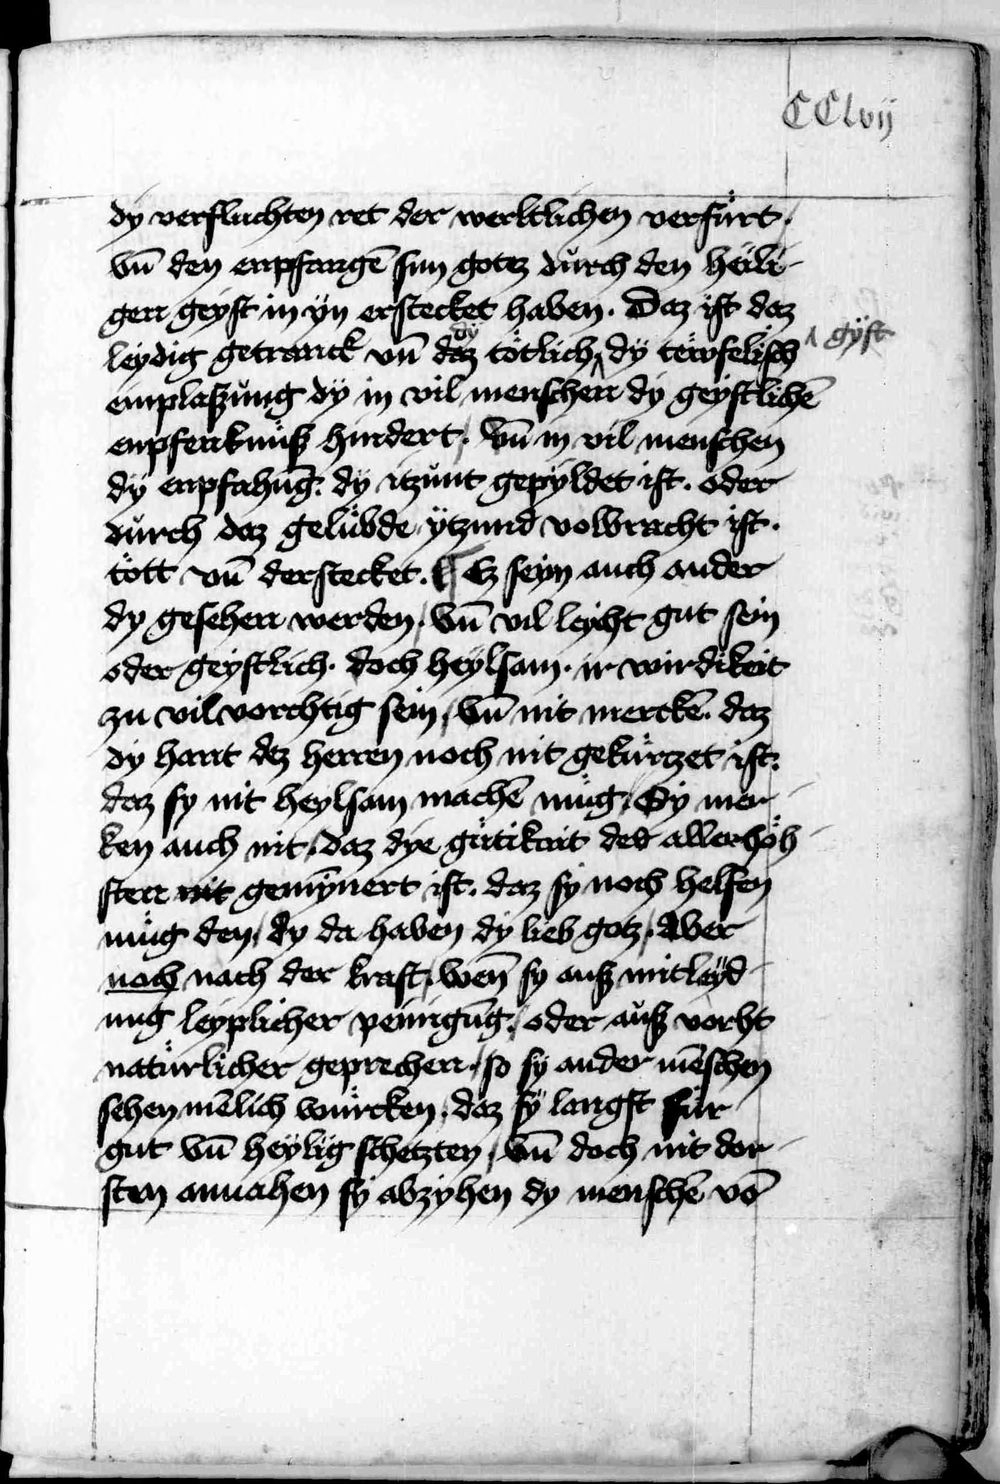 CClvij
dy verfluchten ret der werltlichen verfürt.
vn̄ den enpfangē sun gotz durch den heili-
gen geyst in yn erstecket haben. Daz ist daz
leydig getranck vn̄ daz dy tötlich ʌ dÿ tewfelisch ʌ gyft
einplaßung dÿ in vil menschen dy geystlichē
enpfenknuß hindert. Vn̄ in vil menschen
dÿ enpfahūg. dÿ itzunt gepyldet ist. oder
durch daz gelübde ÿtzund volbracht ist.
tött vn̄ derstecket. Ez seyn auch ander
dy gesehen werden, vn̄ vil leycht gut sein
oder geystlich. doch heylsam. ir wirdikeit
zu vil vorchtig sein, vn̄ nit merckē. daz
dy hant dez herren noch nit gekürtzet ist.
daz sy nit heylsam machē müg. Dy mer-
ken auch nit. daz dye gütikait des allerhöh-
sten nit gemÿnert ist. daz sÿ noch helfen
müg den, dy da haben dÿ lieb gotz. Aber
noch nach der kraft, wen̄ sy auß mitleyd-
ung leyplicher peinigūg, oder auß vorht
natürlicher geprechen. so sy ander mēschen
sehen mēlich würcken. daz sÿ langst für
gut vn̄ heÿlig schetzten, vn̄ doch nit dor-
sten annahen sÿ abzyhen dy menschē vō